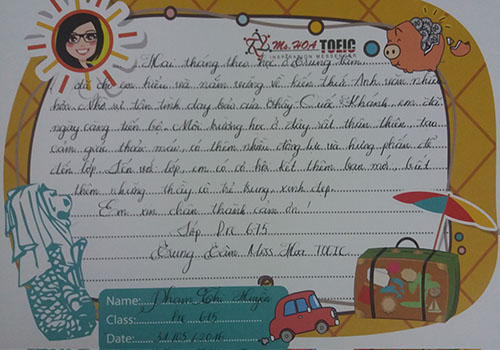 Ms. HOA TOEIC
INSPIRATION MESSENGER
Hai tháng theo học ở Trung tâm
đã cho em hiểu và nắm vững về kiến thức Anh văn nhiều
hơn. Nhờ sự tận tình dạy bảo của thầy Quốc Khánh, em đã
ngày càng tiến bộ. Môi trường học ở đây rất thân thiện, tạo
cảm giác thoải mái, có thêm nhiều động lực và hưng phấn để
đến lớp. Đến với lớp, em có cơ hội kết thêm bạn mới, biết
thêm những thầy cô trẻ trung, xinh đẹp.
Em xin chân thành cảm ơn!
Lớp Pre 675
Trung tâm Miss Hoa TOEIC
Name: Phạm Thị Huyền
Class: Pre 675
Date: